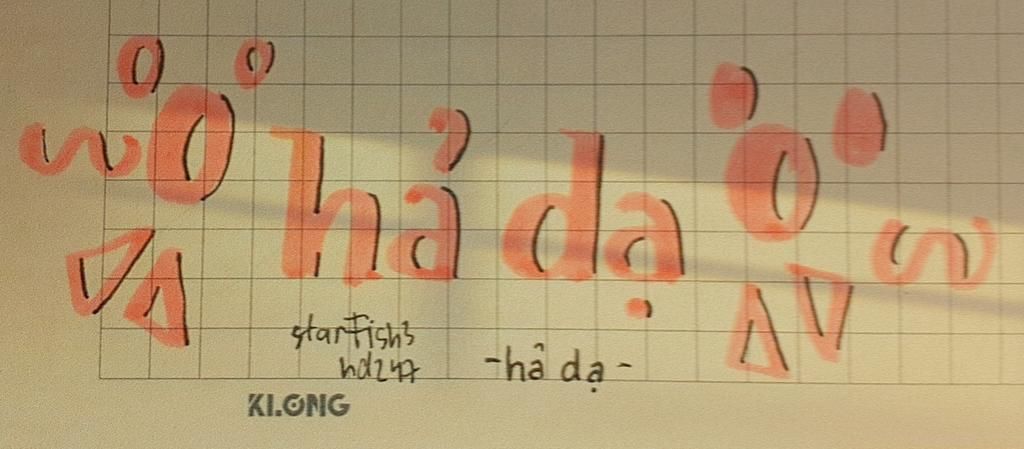 hả dạ
starfish3
hd247
-hả dạ-
KLONG